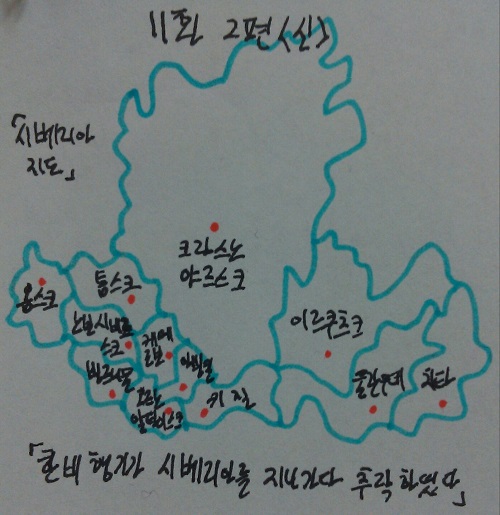 11회 2편〈신〉
「시베리아
지도」
크라스노
야르스크
옴스크
톰스크
노보시비르
스크
케메
로보
이르쿠츠크
바르나울
아바칸
고르노
알타이스크
키질
울란우데
치타
비행기가 시베리아를 지나가다 추락하였다」